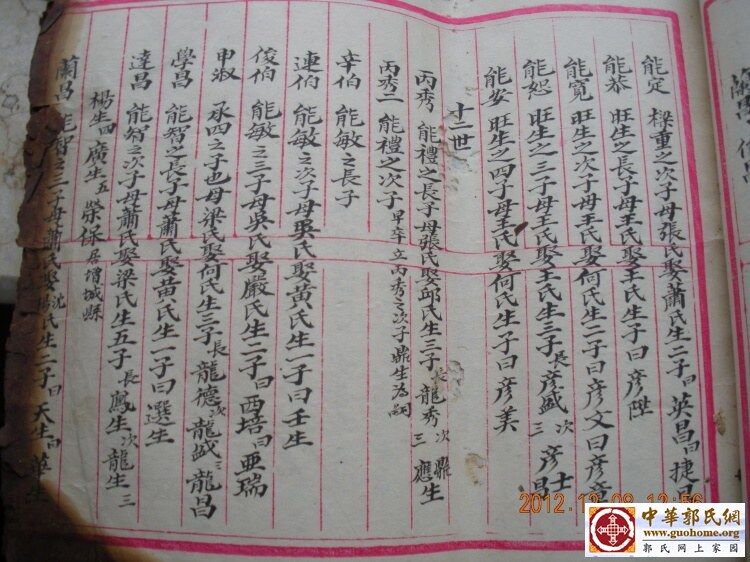 能定 樑重之次子母張氏娶蕭氏生二子曰英昌曰捷
能恭 旺生之長子母王氏娶王氏生子曰彦陞
能寬 旺生之次子母王氏娶何氏生二子曰彦文曰彦
能恕 旺生之三子母王氏娶王氏生三子長彦盛次士三彦昌
能安 旺生之四子母王氏娶何氏生子曰彦美
十二世
丙秀 能禮之長子母張氏娶邱氏生三子長龍秀次鼎三應生
丙秀二 能禮之次子早卒立丙秀之次子鼎生為嗣
辛伯 能敏之長子
連伯 能敏之次子母吳氏娶黃氏生一子曰壬生
俊伯 能敏之三子母吳氏娶嚴氏生二子曰西培曰亜瑞
申淑 承四之子也母梁氏娶何氏生三子長龍德次龍盛三龍昌
學昌 能智之長子母蕭氏娶黃氏生一子曰選生
達昌 能智之次子母蕭氏娶梁氏生五子長鳳生次龍生三
楊生四廣生五榮保居增城縣
蘭昌 能智之三子母蕭氏娶沈楊氏生二子曰天生曰華生
2012.12.09 12:56
中華郭氏網
www.guohome.org
郭氏网上家园